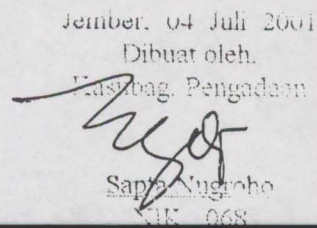 Jember, 04 Juli 2001
Dibuat oleh.
Kasubag. Pengadaan
Sapta Nugroho
NIK 068